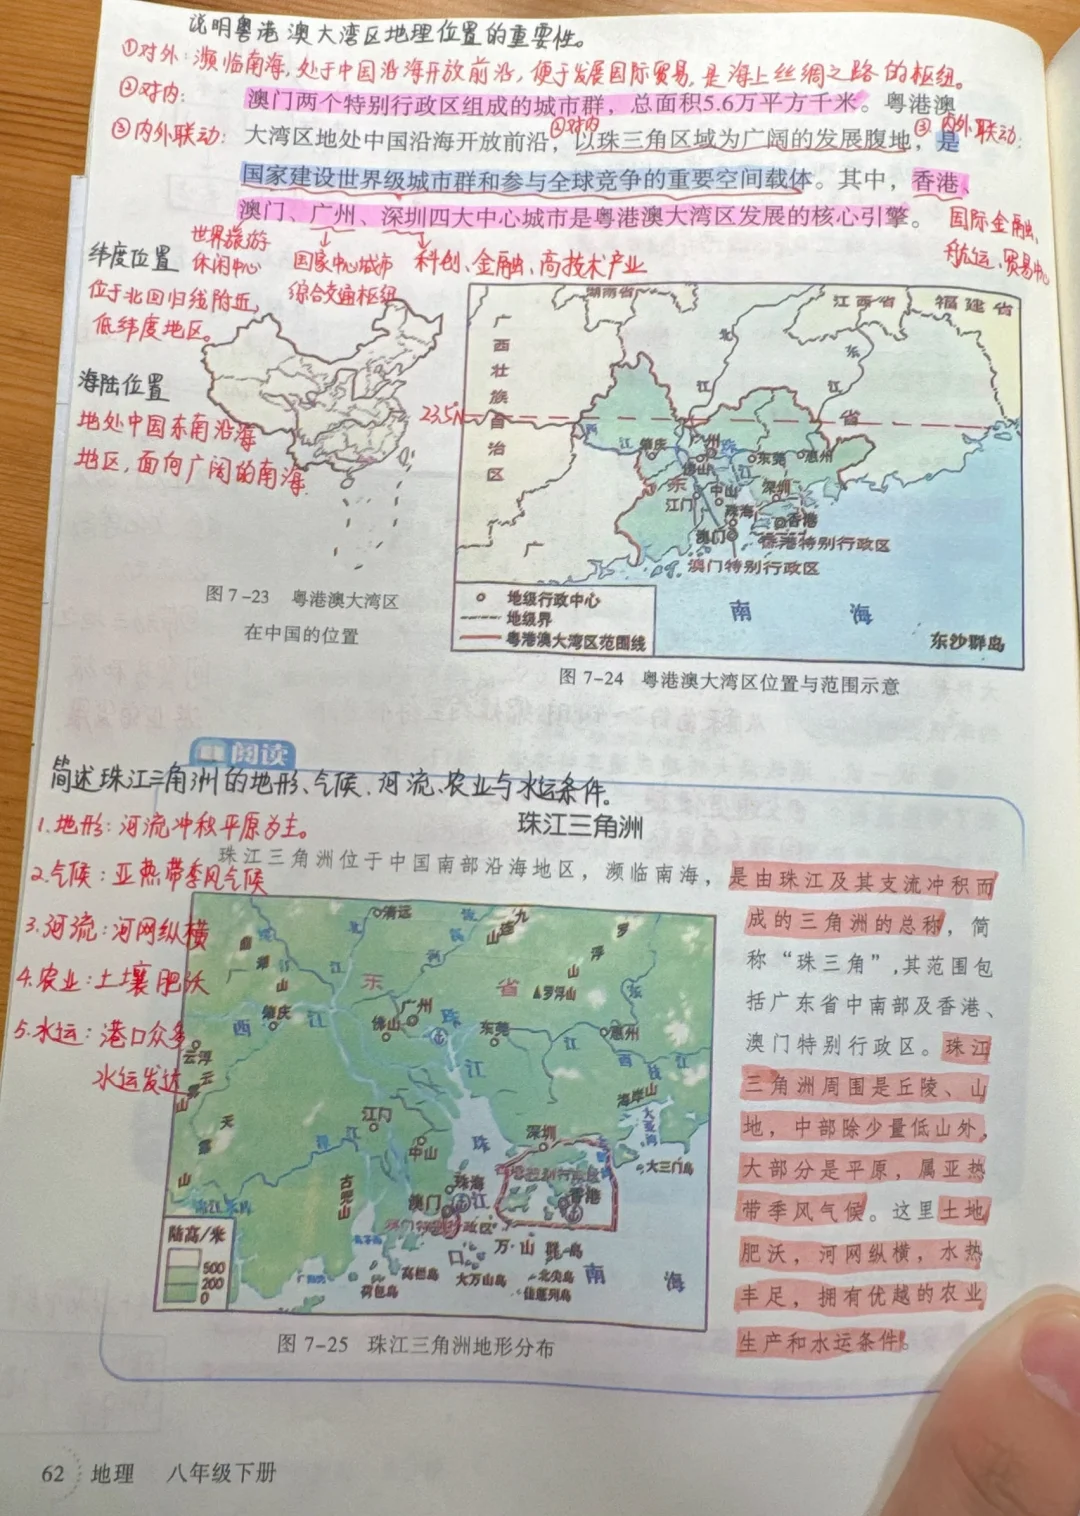 说明粤港澳大湾区地理位置的重要性。
①对外：濒临南海，处于中国沿海开放前沿，便于发展国际贸易，是海上丝绸之路的枢纽。
②对内：
澳门两个特别行政区组成的城市群，总面积5.6万平方千米。粤港澳
③内外联动：
大湾区地处中国沿海开放前沿，以珠三角区域为广阔的发展腹地，是
②对内
③内外联动：
国家建设世界级城市群和参与全球竞争的重要空间载体。其中，香港、
澳门、广州、深圳四大中心城市是粤港澳大湾区发展的核心引擎。
国际金融、
航运、贸易中心
世界旅游
休闲中心
国家中心城市
综合交通枢纽
科创、金融、高技术产业
纬度位置
位于北回归线附近，
低纬度地区。
海陆位置
地处中国东南沿海
地区，面向广阔的南海.
图 7-23 粤港澳大湾区
在中国的位置
湖南省
江西省
福建省
广西壮族自治区
北江
东江
23.5°N
省
西江
肇庆
广州
珠江
佛山
东莞
惠州
东
江门
中山
深圳
珠海
香港
澳门
香港特别行政区
澳门特别行政区
广
南海
东沙群岛
地级行政中心
地级界
粤港澳大湾区范围线
图 7-24 粤港澳大湾区位置与范围示意
阅读
简述珠江三角洲的地形、气候、河流、农业与水运条件。
1.地形：河流冲积平原为主。
2.气候：亚热带季风气候
3.河流：河网纵横
4.农业：土壤肥沃
5.水运：港口众多
水运发达
珠江三角洲
珠江三角洲位于中国南部沿海地区，濒临南海，是由珠江及其支流冲积而
成的三角洲的总称，简
称“珠三角”，其范围包
括广东省中南部及香港、
澳门特别行政区。珠江
三角洲周围是丘陵、山
地，中部除少量低山外，
大部分是平原，属亚热
带季风气候。这里土地
肥沃，河网纵横，水热
丰足，拥有优越的农业
生产和水运条件。
清远
北江
九连山
罗浮山
东省
肇庆
西江
广州
佛山
珠江
东莞
惠州
东江
西枝江
云浮
云雾山
天露山
海岸山
大亚湾
江门
潭江
中山
深圳
珠江
大三门岛
古兜山
珠海
澳门
香港
万山群岛
高栏岛
荷包岛
大万山岛
北尖岛
佳蓬列岛
南海
陆高/米
500
200
0
图 7-25 珠江三角洲地形分布
62 地理 八年级下册